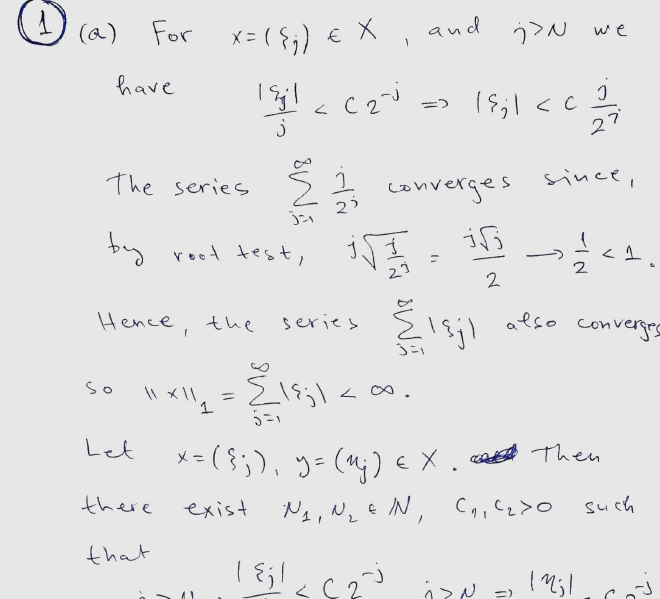 ① (a) For x = (ξj) ∈ X, and j>N we
have |ξj|/j < C 2^-j ⇒ |ξj| < C j/2^j
The series ∑_{j=1}^∞ j/2^j converges since,
by root test, j√(j/2^j) = j√j/2 → 1/2 < 1.
Hence, the series ∑_{j=1}^∞ |ξj| also converges
so ||x||_1 = ∑_{j=1}^∞ |ξj| < ∞.
Let x=(ξj), y=(ηj) ∈ X. Then
there exist N1, N2 ∈ ℕ, C1, C2>0 such
that
|ξj| < C 2^-j, j>N ⇒ |ηj|